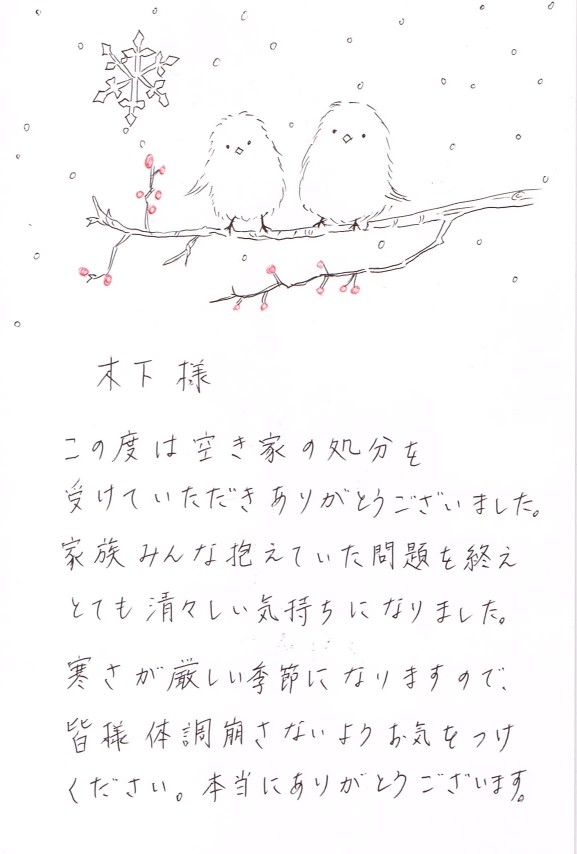 木下 様
この度は空き家の処分を
受けていただきありがとうございました。
家族みんな抱えていた問題を終え
とても清々しい気持ちになりました。
寒さが厳しい季節になりますので、
皆様 体調崩さないようお気をつけ
ください。本当にありがとうございます。